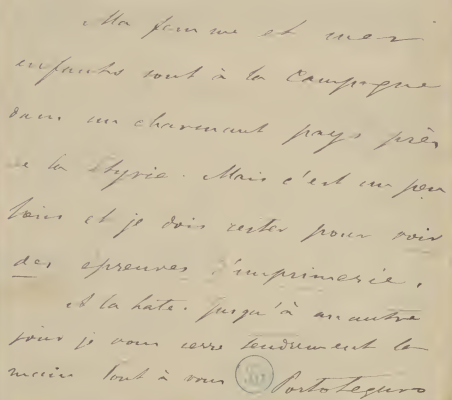 Ma femme et mes
enfants sont à la Campagne
dans un charmant pays près
de la Styrie. Mais c'est un peu
loin et je dois rester pour voir
des epreuves d'imprimerie.
A la hâte. Jusqu'à un autre
jour je vous serre tendrement la
main tout à vous Porto Seguro